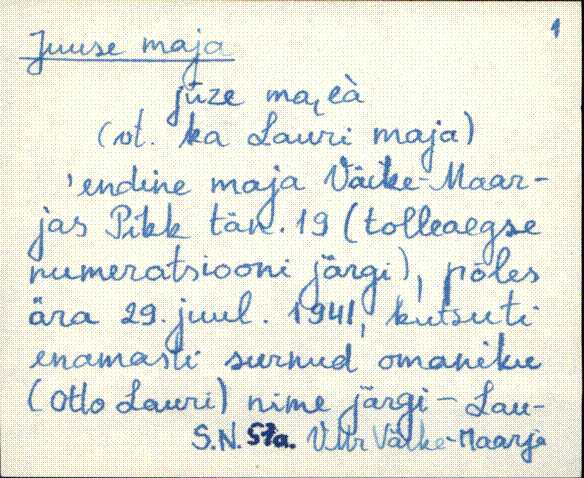 1
Juuse maja
jūze ma,eà
(vt. ka Lauri maja)
'endine maja Väike-Maar-
jas Pikk tän. 19 (tolleaegse
numeratsiooni järgi), põles
ära 29. juul. 1941, kutsuti
enamasti surnud omaniku
(Otto Lauri) nime järgi - Lau-
S.N. Sta. VMr Väike-Maarja